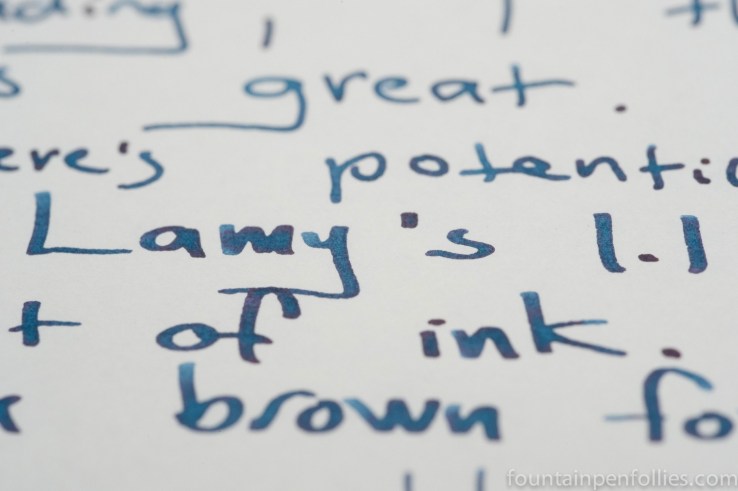 great.
ere's potentia
Lamy's 1.1
t of ink.
brown fo
fountainpenfollies.com